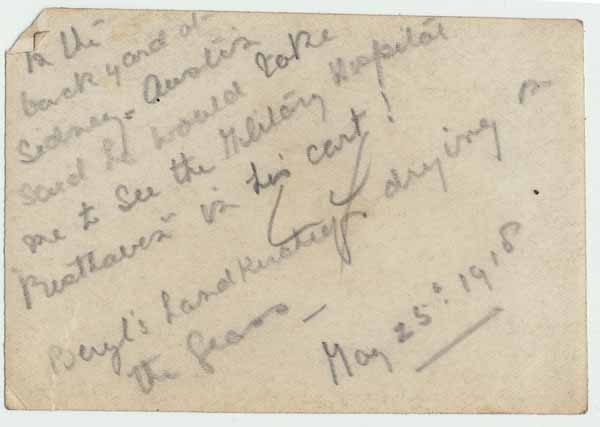 In the
backyard at
Sidney - Austin
said he would take
me to see the Military Hospital
"Resthaven" in his cart!
Beryl's handkerchief drying on
the grass -
May 25th. 1918